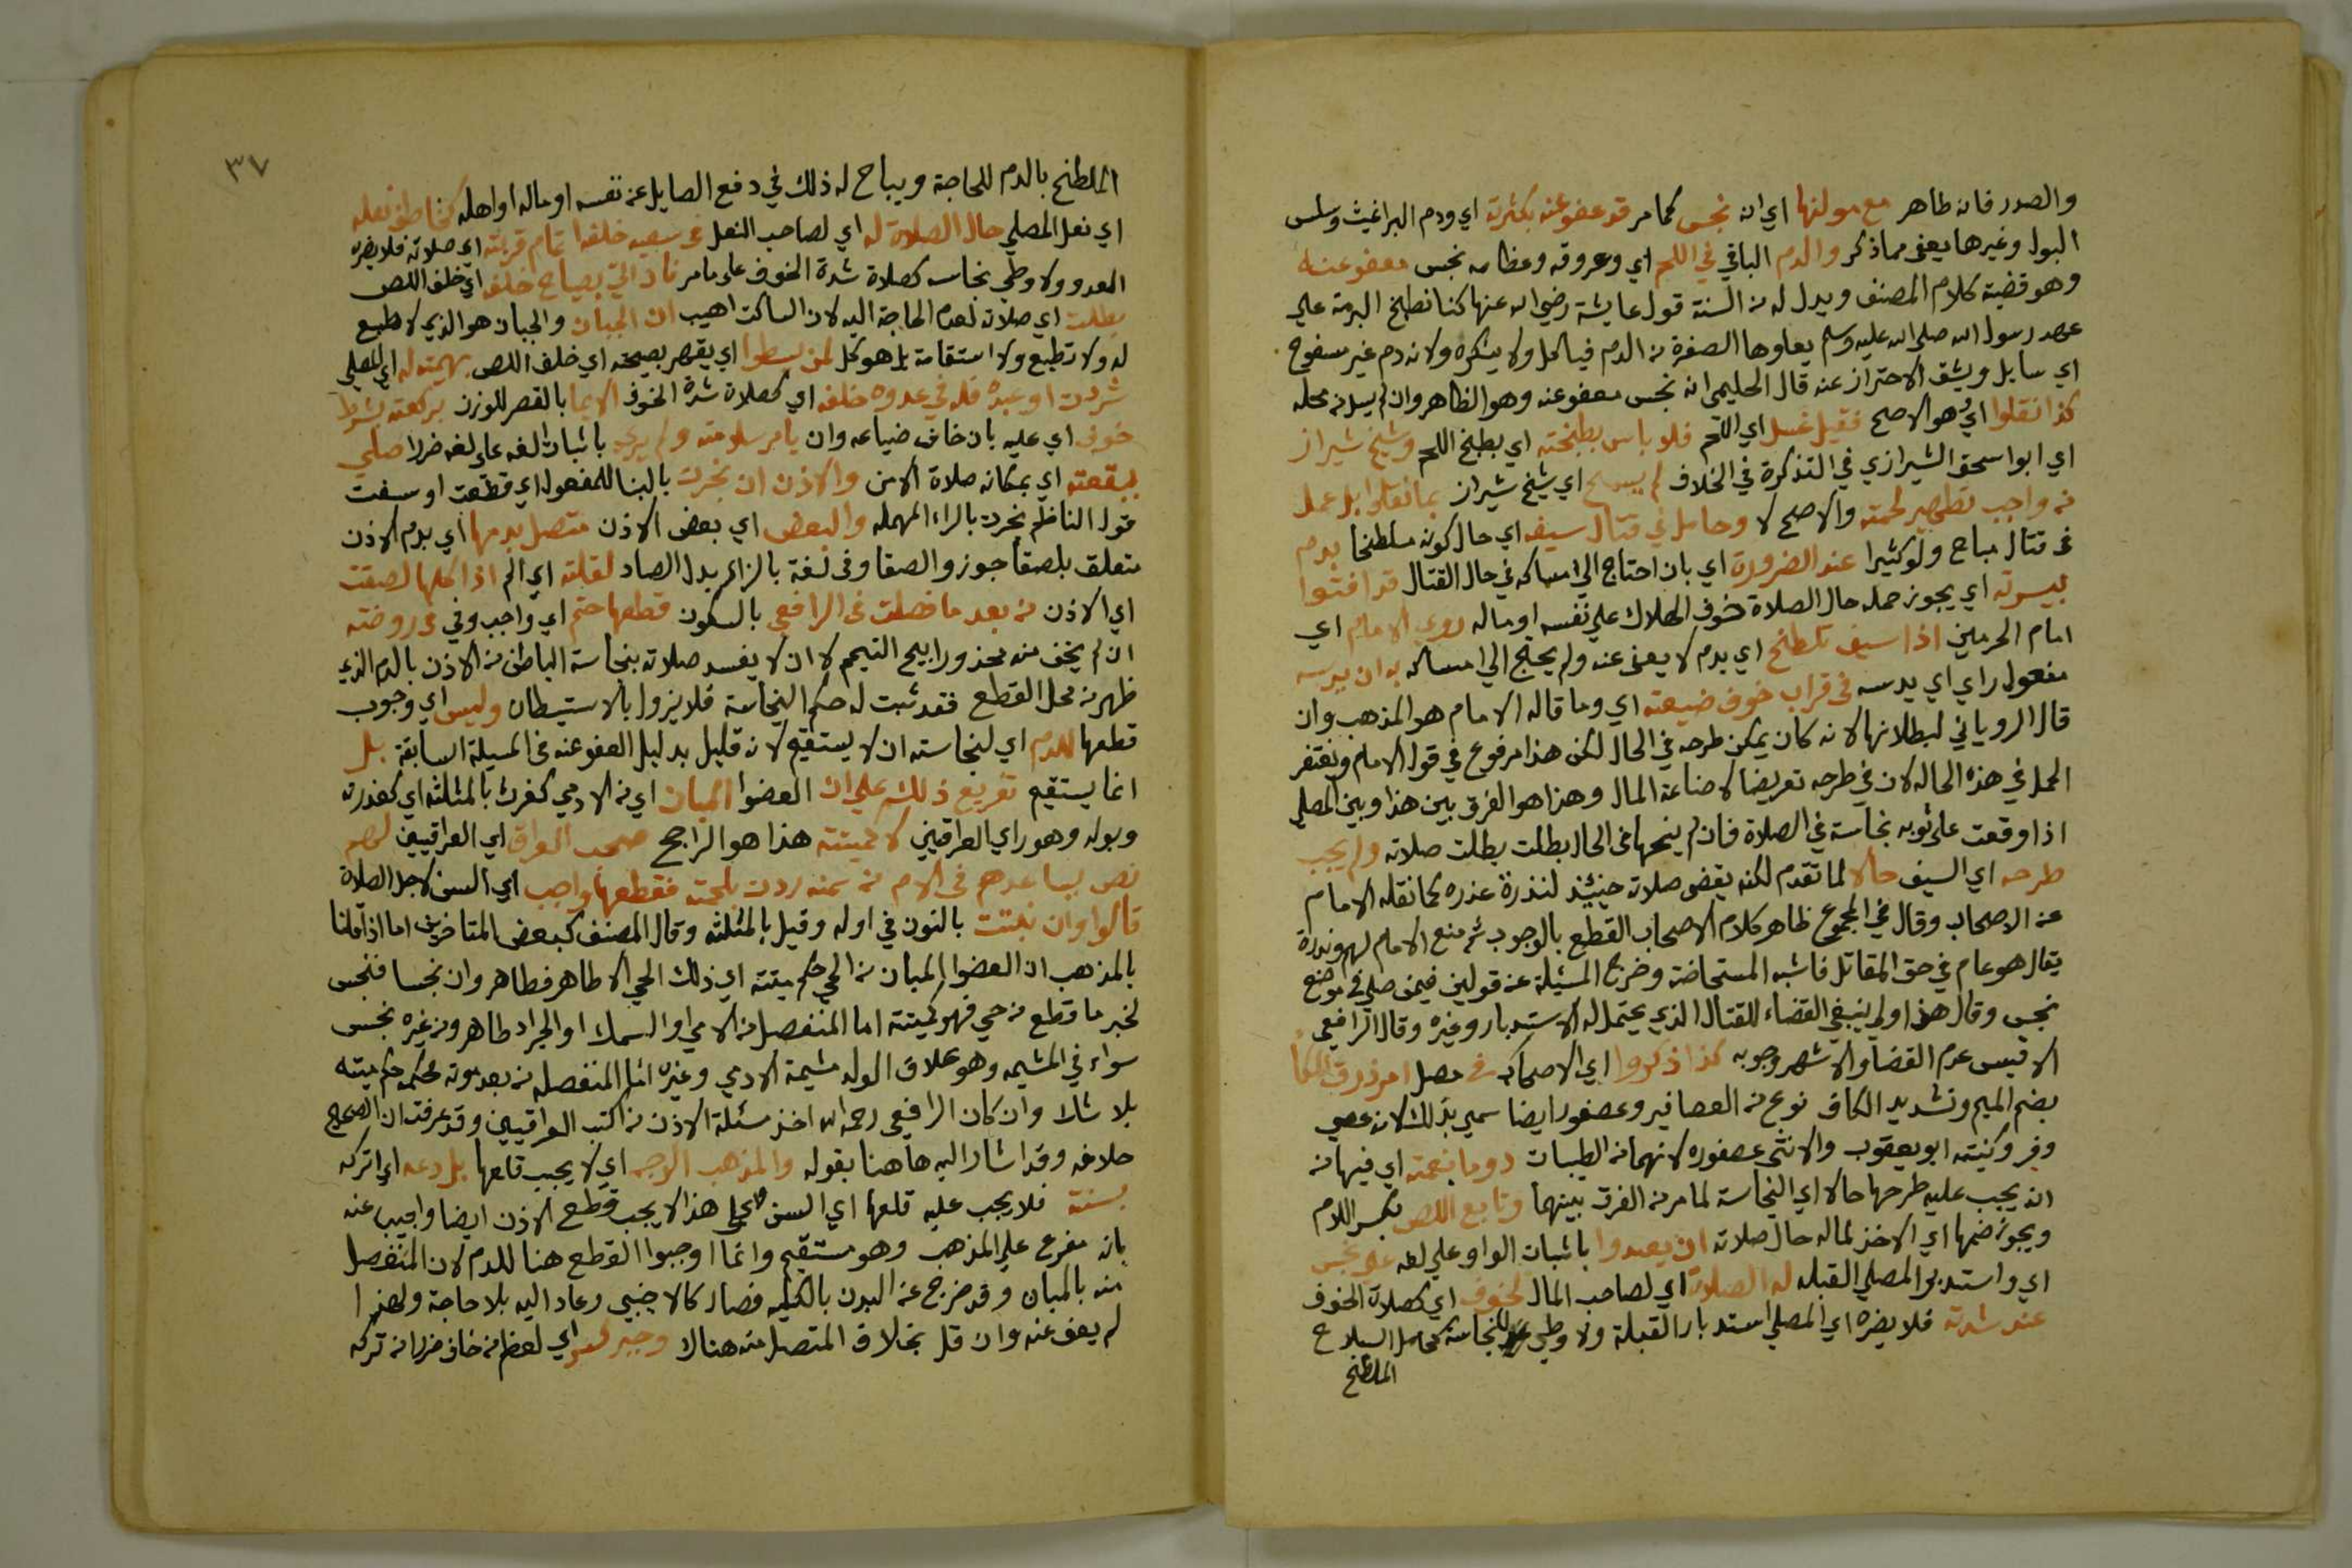 والصدر فانه طاهر مع مولنها اي ان نجس كما مر قد عفوعنه بكثرته اي ودم البراغيث وسلس
البول وغيرها يعفى مما ذكر والدم الباقي في اللحم اي وعروقه وعظامه نجس معفوعنه
وهو قضية كلام المصنف ويدل له من السنة قول عايشة رضي الله عنها كنا نطبخ البرمة علي
عهد رسول الله صلي الله عليه وسلم يعلوها الصفرة من الدم فياكل ولا ينكره ولانه دم غير سفوح
اي سايل ويشق الاحتراز عنه قال الحليمي انه نجس معفوعنه وهو الظاهر وان لم يسل من محله
كذا نقلوا اي هو الاصح فقيل غسل اي اللحم فلا باس بطبخته اي بطبخ اللحم وشيخ شيراز
اي ابو اسحق الشيرازي في التذكرة في الخلاف لم يسمح اي شيخ شيراز بما نقلوا بل عمل
من واجب تطهير لحمته والاصح لا وحامل في قتال سيف اي حال كونه ملطخا بدم
في قتال مباح ولو كثيرا عند الضرورة اي بان احتاج الي امساكه في حال القتال قد افتوا
اي يجوز حمله حال الصلاة خوف الهلاك علي نفسه او ماله روي الامام اي
امام الحرمين اذا سيف تلطخ اي بدم لا يعفى عنه ولم يحتج الي امساكه به ان يدسه
مفعول راي اي يدسه في قراب خوف ضيعته اي وما قاله الامام هو المذهب وان
قال الروياني لبطلانها لانه كان يمكن طرحه في الحال لكن هذا مرفوع في قول الامام ويغتفر
الحمل في هذه الحاله لان في طرحه تعريضا لاضاعة المال وهذا هو الفرق بين هذا وبين المصلي
اذا وقعت على ثوبه نجاسة في الصلاة فان لم ينحها في الحال بطلت بطلت صلاته ولم يجب
طرحه اي السيف حالا لما تقدم لكنه يقضى صلاته حينئذ لندرة عذره كما نقله الامام
عن الاصحاب وقال في المجموع ظاهر كلام الاصحاب القطع بالوجوب ثم منع الامام لهم وندرة
يقال هو عام في حق المقاتل فاشبه المستحاضة وخرج المسئلة عن قولين فيمن صلي في موضع
نجس وقال هذا اولي بنفي القضاء للقتال الذي يحتمل له الاستدبار وغيره وقال الرافعي
الاقيس عدم القضا والاشهر وجوبه كذا ذكروا اي الاصحاب في فصل امر ذرق المكا
بضم الميم وتشديد الكاف نوع من العصافير وعصفور ايضا سمي بذلك لانه عصي
وفر وكنيته ابو يعقوب والانثى عصفوره لانهما من الطيبات دوما بنعمته اي فيها من
انه يجب عليه طرحها حالا اي النجاسة لما مر من الفرق بينهما وتابع اللص بكسر اللام
ويجوز ضمها اي الاخذ لماله حال صلاته ان يعدوا باثبات الواو علي لغه علي نجس
اي واستدبر المصلي القبله له الصلاة اي لصاحب المال لخوف اي كصلاة الخوف
عند شدته فلا يضره اي المصلي استدبار القبلة ولا وطي النجاسة كحامل السلاح
الملطخ
٣٧
الملطخ بالدم للحاجة ويباح له ذلك في دفع الصايل عن نفسه او ماله او اهله كخاطف نعله
اي نعل المصلي حال الصلاة له اي لصاحب النعل في سعيه خلفه اتمام قربته اي صلاته فلا يضره
العدو ولا وطي نجاسه كصلاة شدة الخوف على ما مر ناد اتي بصياح خلفه اي خلف اللص
بطلت اي صلاته لعدم الحاجة اليه لان الساكت اهيب ان الجبان والجبان هو الذي لا طبع
له ولا تطبع ولا استقامة بل هو كل لمن يسطوا اي يقهر بصيحته اي خلف اللص بهيمته له اي المصلي
شردت او عبده فله في عدوه خلفه اي كصلاة شدة الخوف الايما بالقصر للوزن بركعته بشرط
خوف اي عليه بان خاف ضياعه وان يامر سلامته ولم يري باثبات الفه على لغه ضررا صلي
ببقعته اي بمكانه صلاة الامن والاذن ان نخرت بالبنا للمفعول اي قطعت او سفت
قول الناظم نخرت بالراء المهمله والبعض اي بعض الاذن متصل بدمها اي بدم الاذن
متعلق بلصقا جوز والصقا وفي لغة بالزاي بدل الصاد لقلته اي الم اذا كلها لصقت
اي الاذن من بعد ما فصلت في الرافعي بالسكون قطعها حتم اي واجب وفي في روضته
ان لم يخف منه محذورا يبيح التيمم لا ان لا يفسد صلاته بنجاسة الباطن من الاذن بالدم الذي
ظهر من محل القطع فقد ثبت له حكم النجاسة فلا يزول بالاستيطان وليس اي وجوب
قطعها للدم اي لنجاسته ان لا يستقيم لانه قليل بدليل العفو عنه في المسيلة السابقة بل
انما يستقيم تفريع ذلكم علي ان العضوا المبان اي من الادمي كفرث بالمثلثة اي كعذرته
وبوله وهو راي العراقيني لا كميتته هذا هو الراجح صحب العراق اي العراقيين لهم
نص يساعدهم في الام من سنه ردت بلحته فقطعها واجب اي السن لاجل الصلاة
قالوا وان نبتت بالنون في اوله وقيل بالمثلثه وقال المصنف كبعض المتاخرين اما اذا قلنا
بالمذهب ان العضوا المبان من الحي حكم ميتته اي ذلك الحي الا طاهر فطاهر وان نجسا فنجس
لخبر ما قطع من حي فهو كميتته اما المنفصل من الادمي او السمك او الجراد طاهر ومن غيره نجس
سواء في المشيمه وهو غلاف الولد مشيمة الادمي وغيره اما المنفصله من بعد موته فحكمه حكم ميتته
بلا شك وان كان الرافعي رحمه الله اخذ مسئلة الاذن من كتب العراقيين وقد عرفت ان الصحيح
خلافه وقد اشار اليه هاهنا بقوله والمذهب الوجه اي لا يجب قلعها بل دعه اي اتركه
بسنته فلا يجب عليه قلعها اي السن فعلي هذا لا يجب قطع الاذن ايضا واجيب عنه
بانه مفرع على المذهب وهو مستقيم وانما اوجبوا القطع هنا للدم لان المنفصل
منه بالمبان وقد خرج عن البدن بالكليه فصار كالاجنبي وعاد اليه بلا حاجة ولهذا
لم يعف عنه وان قل بخلاف المتصل منه هناك وجبر اي لعظم من خاف ضررا من تركه